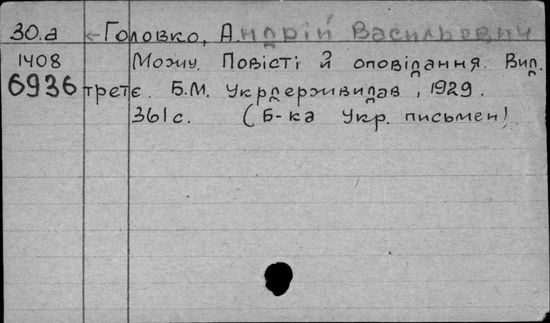 30.а ← Головко, Андрій Васильович
1408 Можу. Повісті й оповідання. Вид.
6936 третє. Б.М. Укрдержвидав, 1929.
361 с. (Б-ка Укр. письмен).